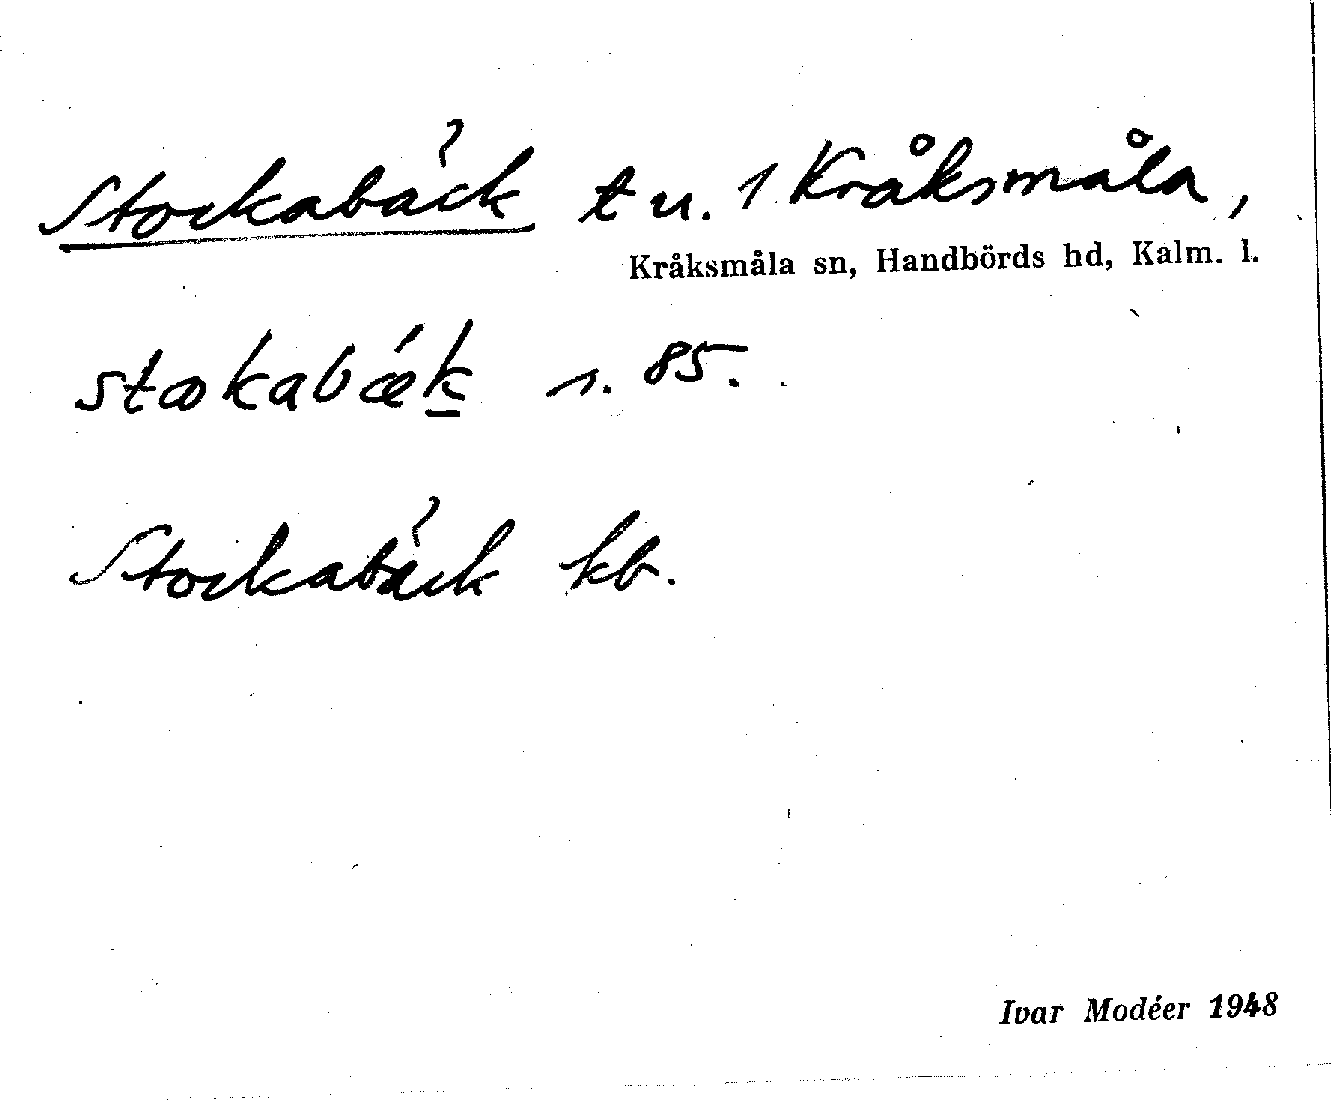 Stockabäck t u. 1 Kråksmåla,
Kråksmåla sn, Handbörds hd, Kalm. l.
stωkabǽk s. 85.
Stockabäck kb.
Ivar Modéer 1948